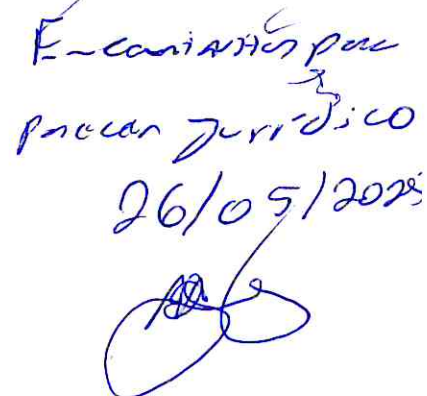 Encaminhas para
Parecer Jurídico
26/05/2025